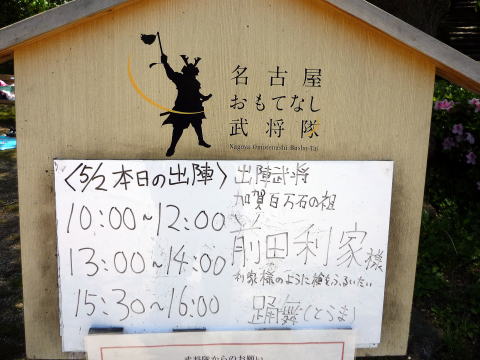 名古屋
おもてなし
武将隊
Nagoya Omotenashi Busho-Tai
〈5/2 本日の出陣〉
10:00〜12:00
13:00〜14:00
15:30〜16:00
出陣武将
加賀百万石の祖
前田利家様
利家様のように槍をふるいたい
踊舞(とうま)
武将隊からのお願い